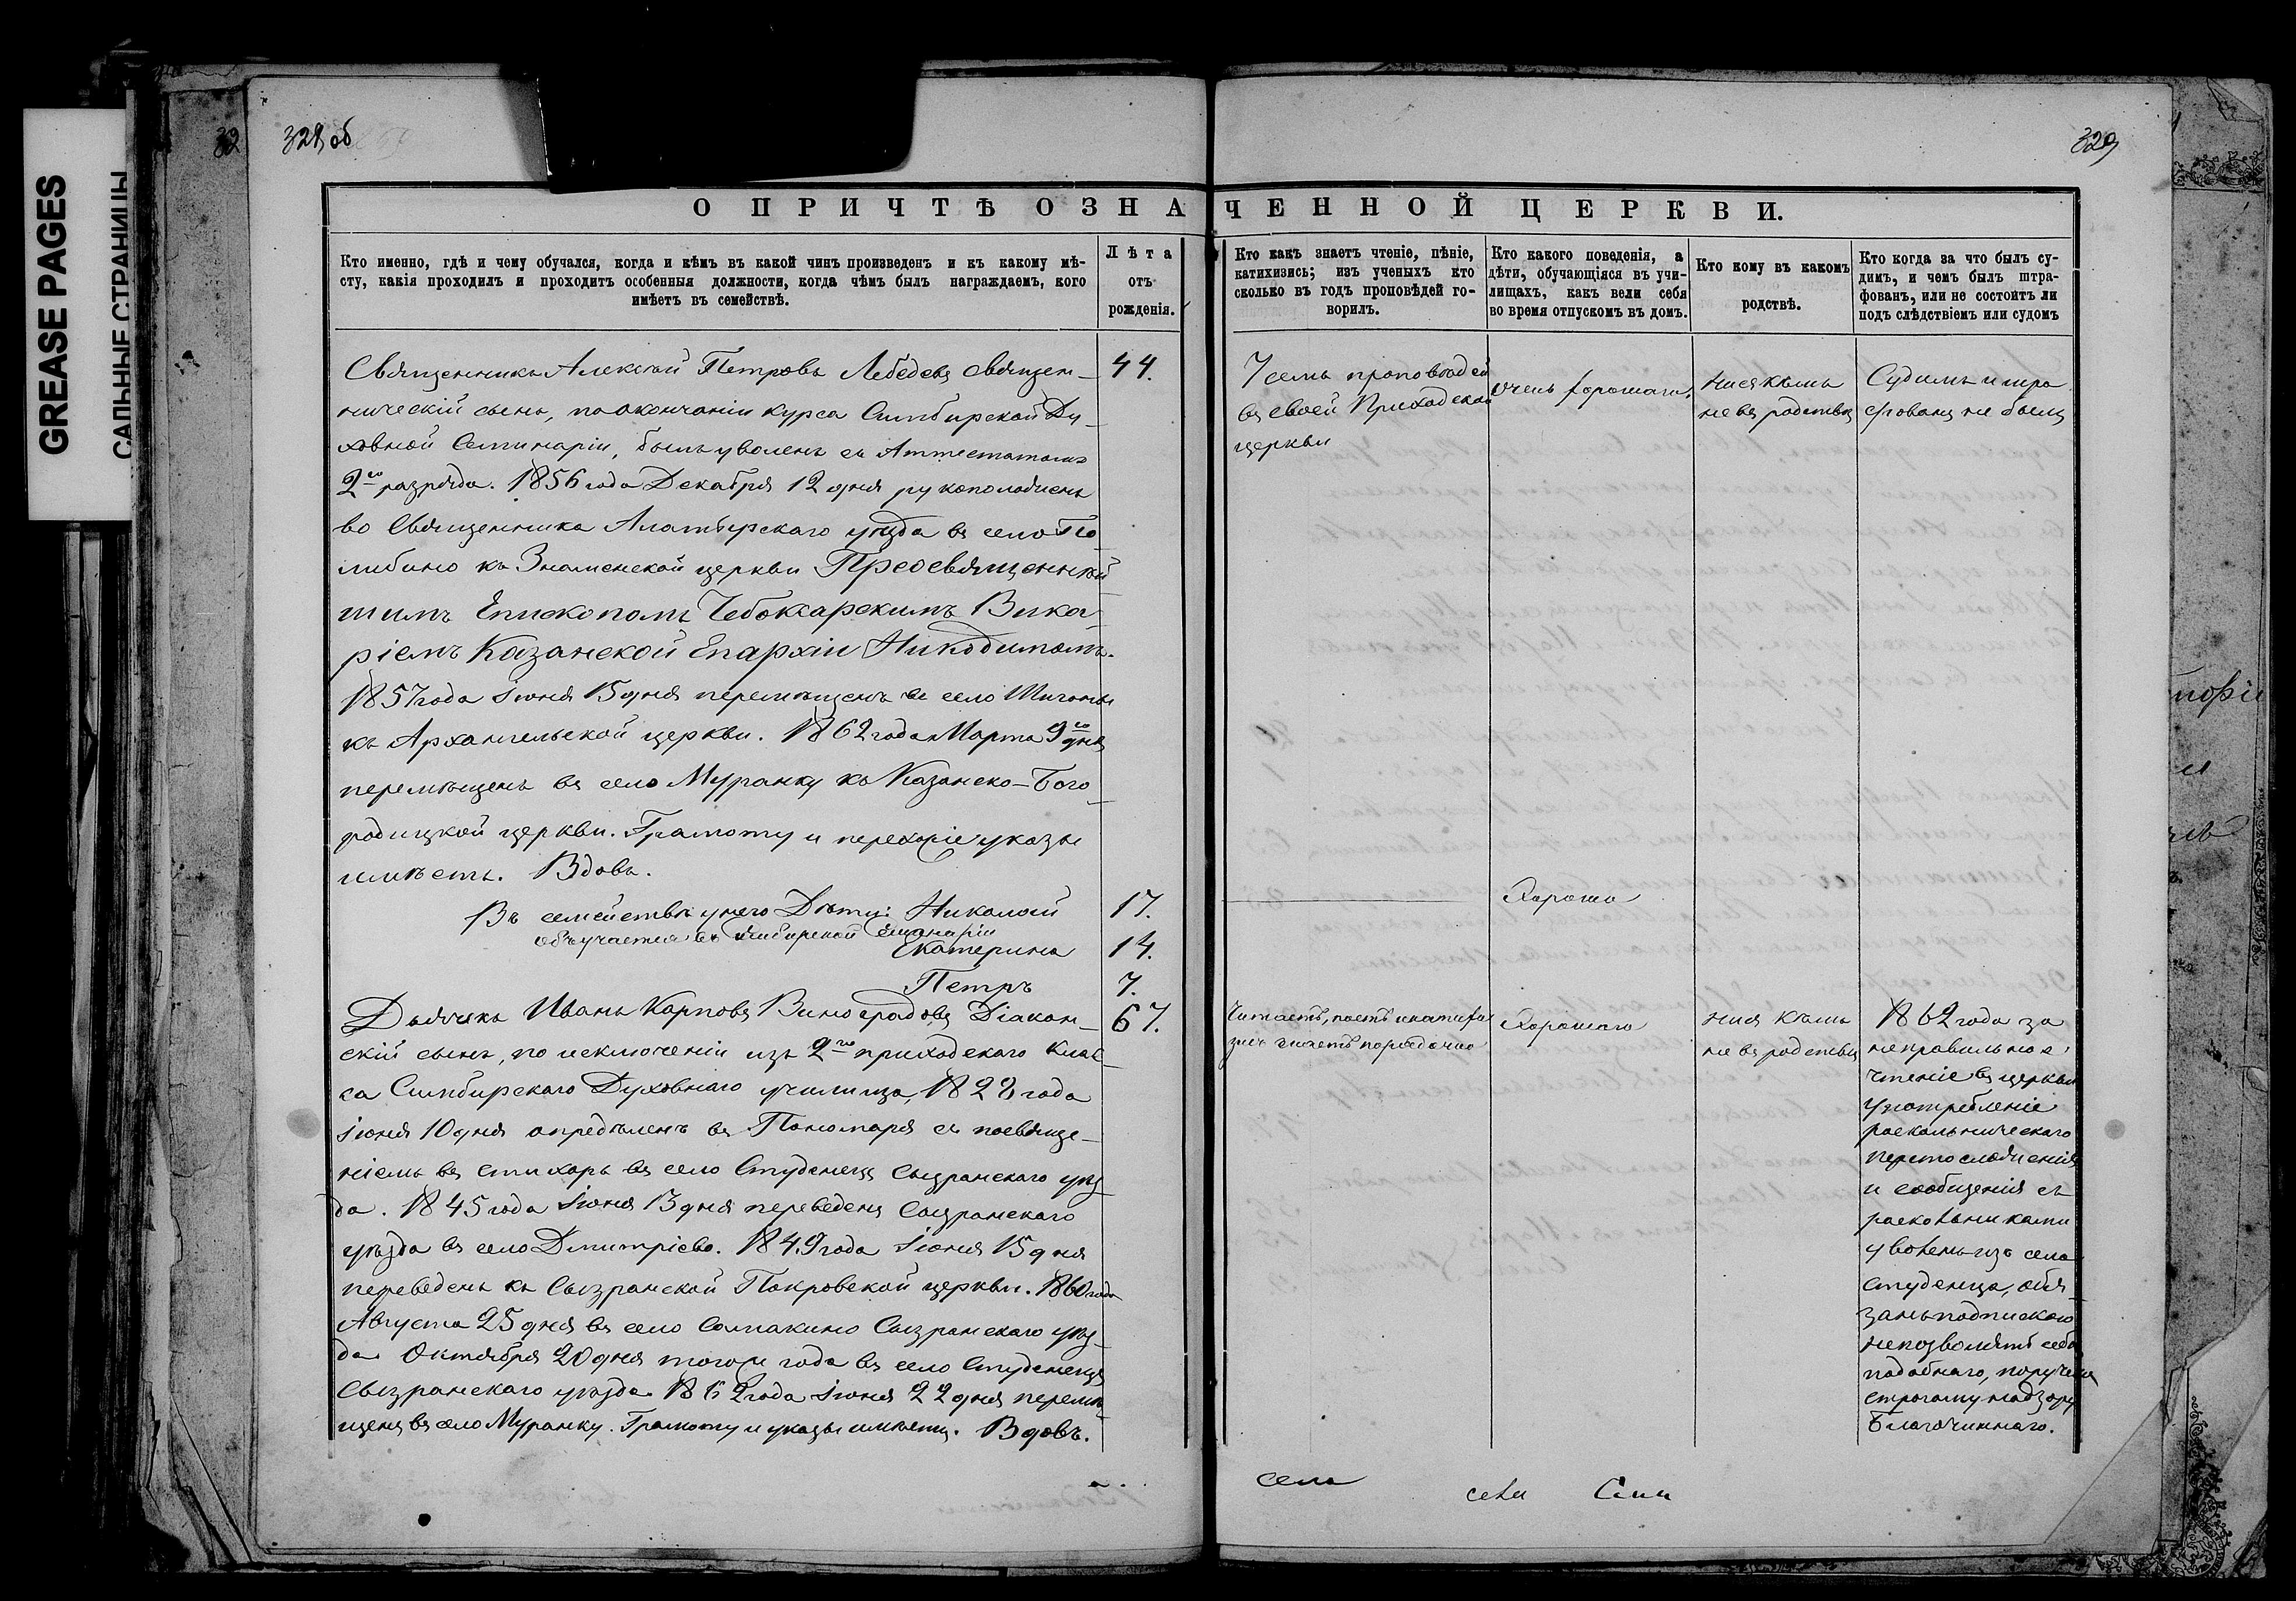 GREASE PAGES
САЛЬНЫЕ СТРАНИЦЫ
32
328 об
329
О ПРИЧТѢ ОЗНАЧЕННОЙ ЦЕРКВИ.
Кто именно, гдѣ и чему обучался, когда и кѣмъ въ какой чинъ произведенъ и къ какому мѣ-
сту, какія проходилъ и проходитъ особенныя должности, когда чѣмъ былъ награждаемъ, кого
имѣетъ въ семействѣ.
Лѣта
отъ
рожденія.
Кто какъ знаетъ чтеніе, пѣніе,
катихизисъ; изъ ученыхъ кто
сколько въ годъ проповѣдей го-
ворилъ.
Кто какого поведенія, а
дѣти, обучающіяся въ учи-
лищахъ, какъ вели себя
во время отпускомъ въ домъ.
Кто кому въ какомъ
родствѣ.
Кто когда за что былъ су-
димъ, и чемъ былъ штра-
фованъ, или не состоитъ ли
подъ слѣдствіемъ или судомъ
Священникъ Алексѣй Петровъ Лебедевъ священ-
ническій сынъ, по окончаніи курса Симбирской Ду-
ховной Семинаріи, былъ уволенъ съ Аттестатомъ
2го разряда. 1856 года Декабря 12 дня рукоположенъ
во Священника Алатырскаго уѣзда въ село По-
либино къ Знаменской церкви Преосвященнѣй
шимъ Епископомъ Чебоксарскимъ Вика-
ріемъ Казанской Епархіи Никодимомъ.
1857 года Іюня 15 дня перемѣщенъ въ село Шигоны
къ Архангельской церкви. 1862 года Марта 9го дня
перемѣщенъ въ село Муранку къ Казанско-Бого-
родицкой церкви. Грамоту и перехожіе указы
имѣетъ. Вдовъ.
44.
7 семь проповѣдей
въ своей Приходской
церкви
очень хорошаго.
ни съ кѣмъ
не въ родствѣ
Судимъ и штра
фованъ не былъ
Въ семействѣ у него Дѣти: Николай
обучается въ Симбирской Семинаріи
17.
Хорошо
Екатерина
14.
Петръ
7.
Дьячекъ Иванъ Карповъ Виноградовъ Діакон-
скій сынъ, по исключеніи изъ 2го приходскаго клас-
са Симбирскаго Духовнаго училища, 1828 года
Іюня 10 дня опредѣленъ въ Пономаря съ посвяще-
ніемъ въ стихарь въ село Студенецъ Сызранскаго уѣз-
да. 1845 года Іюня 13 дня переведенъ Сызранскаго
уѣзда въ село Дмитріево. 1849 года Іюня 15 дня
переведенъ къ Сызранской Покровской церкви. 1860 года
Августа 25 дня въ село Сызранскаго уѣз-
да Октября 20 дня тогож года въ село Студенецъ
Сызранскаго уѣзда. 1862 года Іюня 22 дня перемѣ
щенъ въ село Муранку. Грамоту и указы имѣетъ. Вдовъ.
67.
Читаетъ, поетъ и катихи
зисъ знаетъ порядочно
Хорошаго
ни съ кѣмъ
не въ родствѣ
1862 года за
неправильное
чтеніе въ церкви
употребленіе
раскольническаго
перстосложенія
и сообщенія съ
раскольниками
уволенъ изъ села
Студенца, обя-
занъ подпискою
не позволять себѣ
подобнаго, порученъ
строгому надзору
Благочиннаго.
села
села